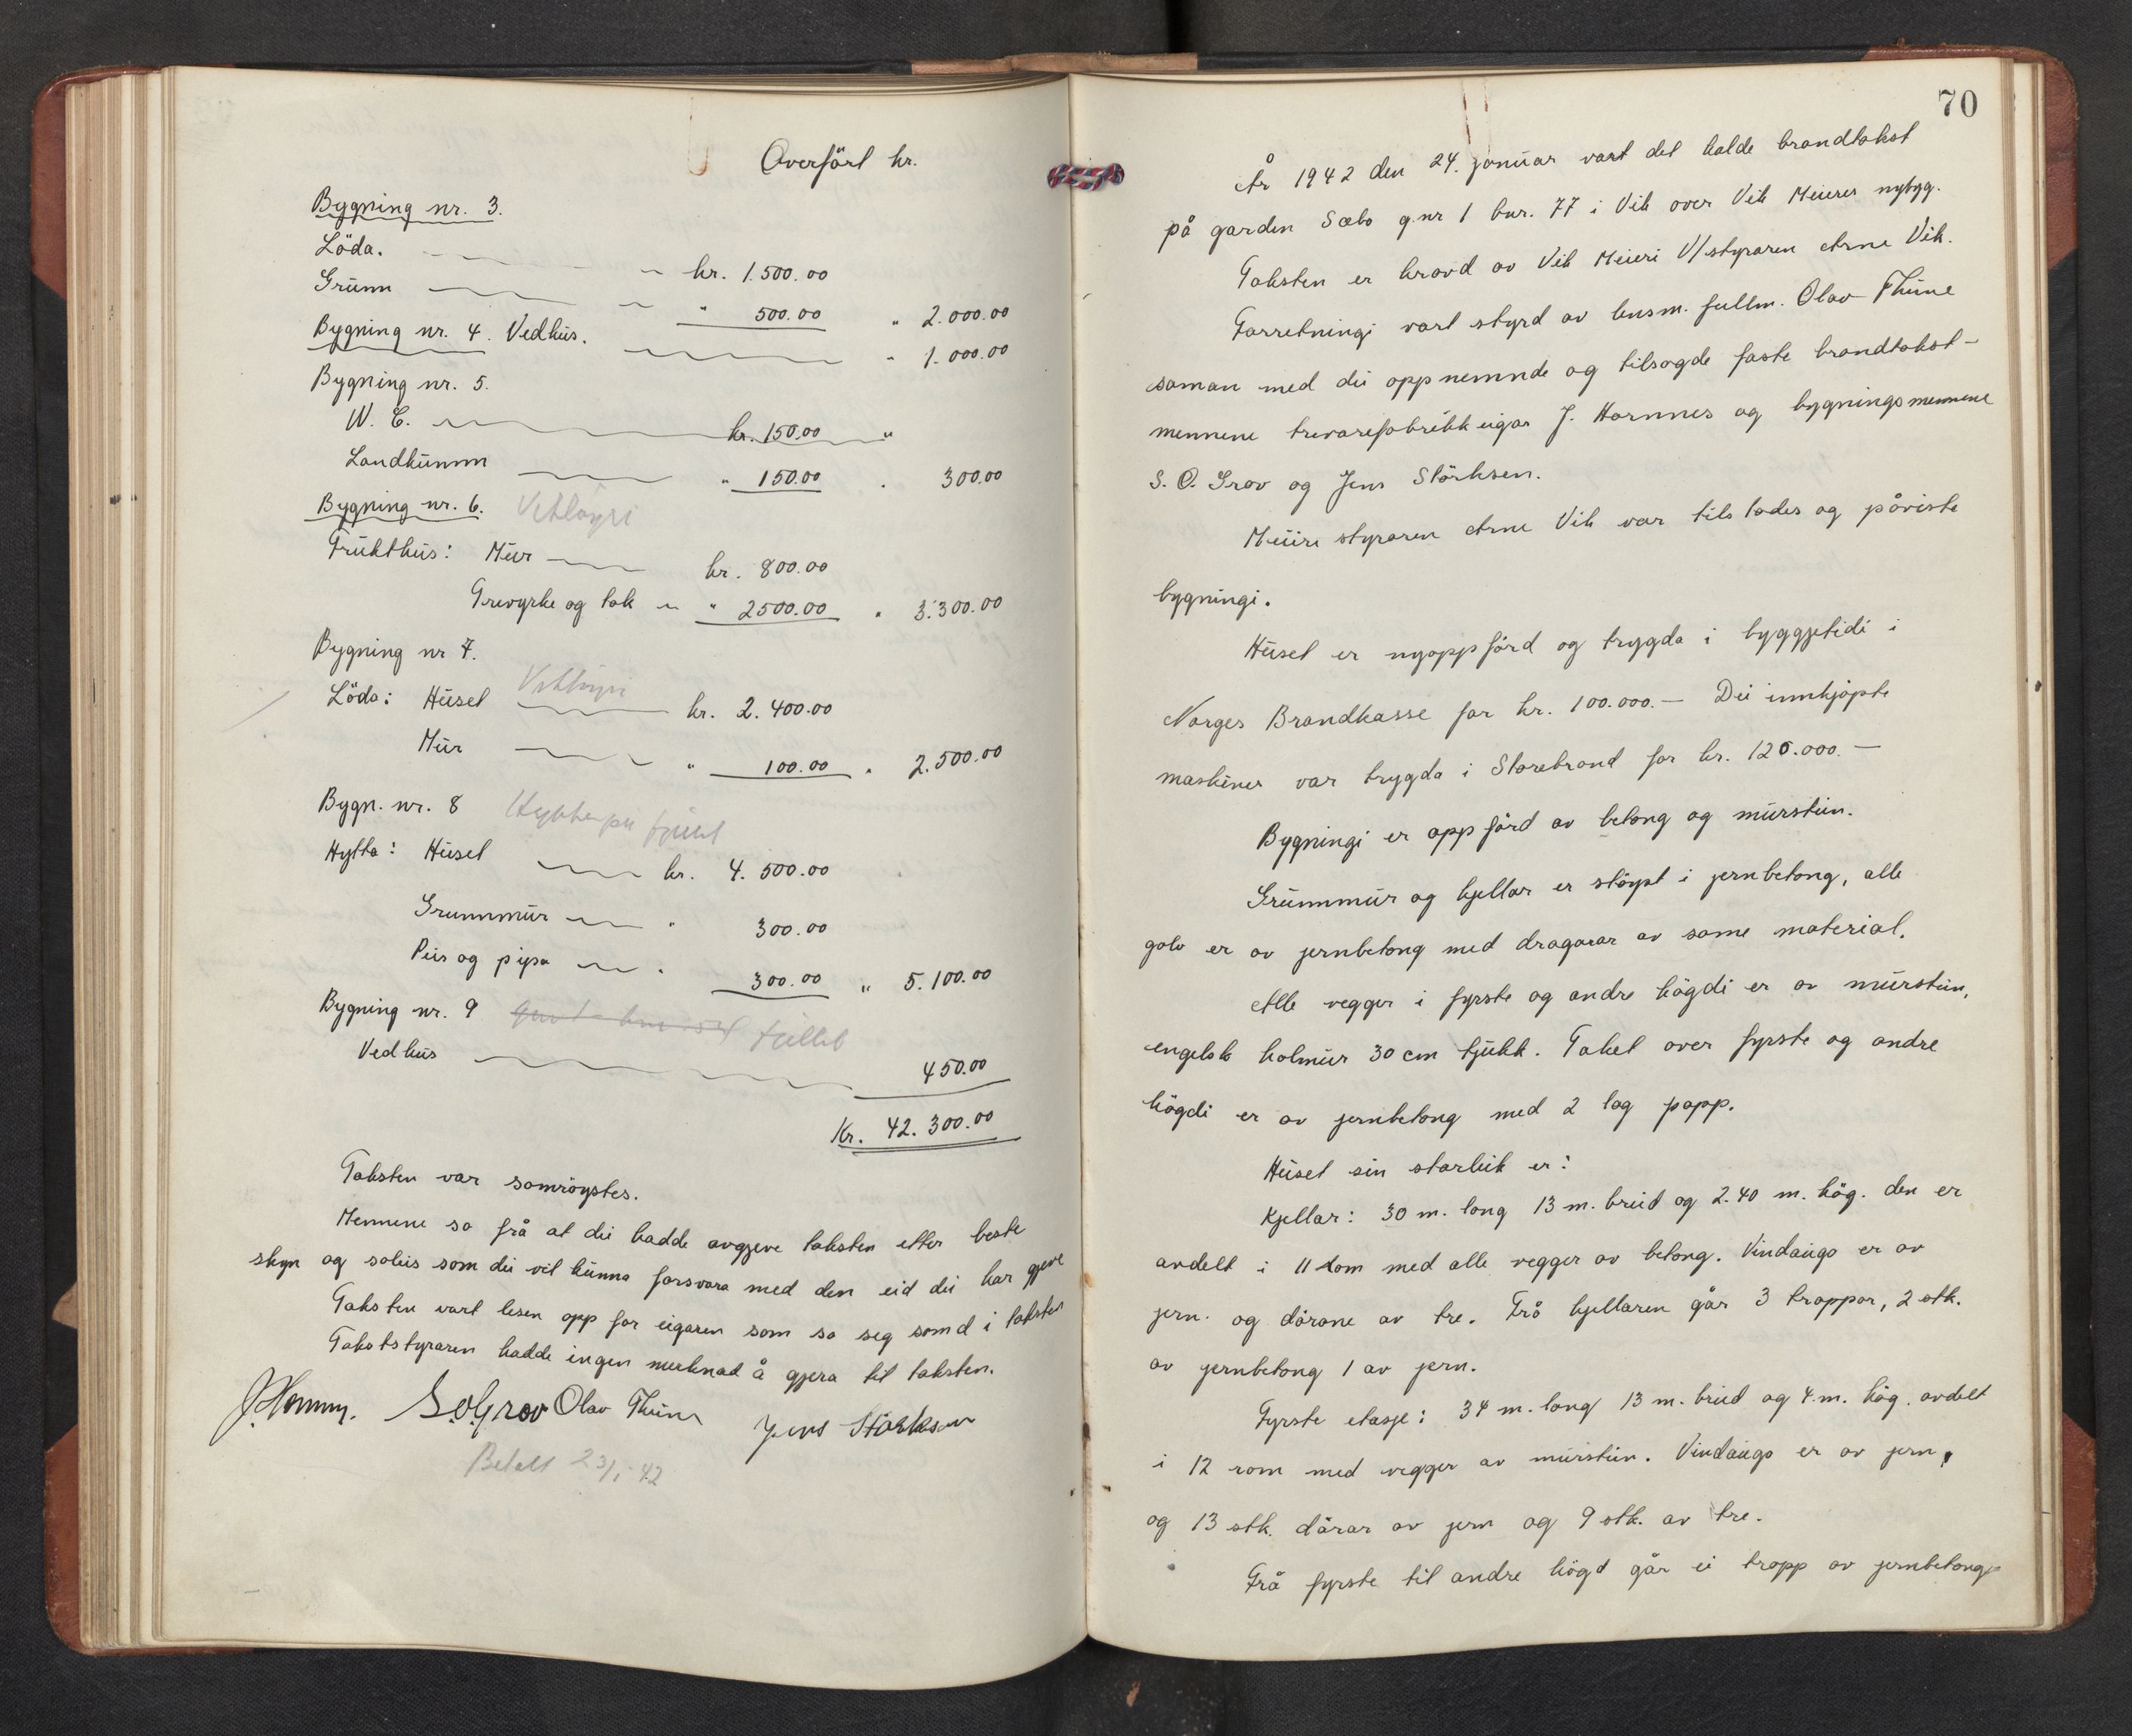 Overfört kr.
Bygning nr. 3.
Löda. kr. 1.500.00
Grunn " 500.00 " 2.000.00
Bygning nr. 4. Vedhus. " 1.000.00
Bygning nr. 5.
W. C. kr. 150.00 "
Landkumm " 150.00 " 300.00
Bygning nr. 6. Vetlöyri
Frukthus: Mur kr. 800.00
Trevyrke og tak " 2500.00 " 3.300.00
Bygning nr 7.
Löda: Huset Vetlöyri kr. 2.400.00
Mur " 100.00 " 2.500.00
Bygn. nr. 8
Hytta: Huset kr. 4.500.00
Grunnmur " 300.00
Peis og pipa " 300.00 " 5.100.00
Bygning nr. 9
Vedhus 450.00
Kr. 42.300.00
Taksten var samröystes.
Mennene sa frå at dei hadde avgjeve taksten etter beste
skyn og soleis som dei vil kunna forsvara med den eid dei har gjeve
Taksten vart lesen opp for eigaren som sa seg samd i taksten
Takststyraren hadde ingen merknad å gjera til taksten.
S.O.Grov Olav Thune Jens Störksen
Betalt 23/1-42
70
År 1942 den 24. januar vart det halde brandtakst
på garden Sæbo g.nr 1 bnr. 77 i Vik over Vik Meieres nybygg.
Taksten er kravd av Vik Meieri V/styraren Arne Vik.
Forretningi vart styrd av lensm. fullm. Olav Thune
saman med dei oppnemnde og tilsagde faste brandtakst-
mennene trevarefabrikkeigar J. Hornnes og bygningsmennene
S. O. Grov og Jens Störksen.
Meiere styraren Arne Vik var tilstades og påviste
bygningi.
Huset er nyoppförd og trygda i byggjetidi i
Norges Brandkasse for kr. 100.000.- Dei innkjöpte
maskiner var trygda i Storebrand for kr. 120.000.-
Bygningi er oppförd av betong og murstein.
Grunnmur og kjellar er stöypt i jernbetong, alle
golv er av jernbetong med dragarar av same material.
Alle vegger i fyrste og andre högdi er av murstein,
engelsk holmur 30 cm tjukk. Taket over fyrste og andre
högdi er av jernbetong med 2 lag papp.
Huset sin storleik er:
Kjellar: 30 m. lang 13 m. breid og 2.40 m. hög. den er
avdelt i 11 rom med alle vegger av betong. Vindaugo er av
jern. og dörane av tre. Frå kjellaren går 3 troppor, 2 stk.
av jernbetong 1 av jern.
Fyrste etasje: 34 m. lang 13 m. breid og 4.m. hög. avdelt
i 12 rom med vegger av murstein. Vindaugo er av jern,
og 13 stk. dörar av jern og 9 stk. av tre.
Frå fyrste til andre högd går ei tropp av jernbetong